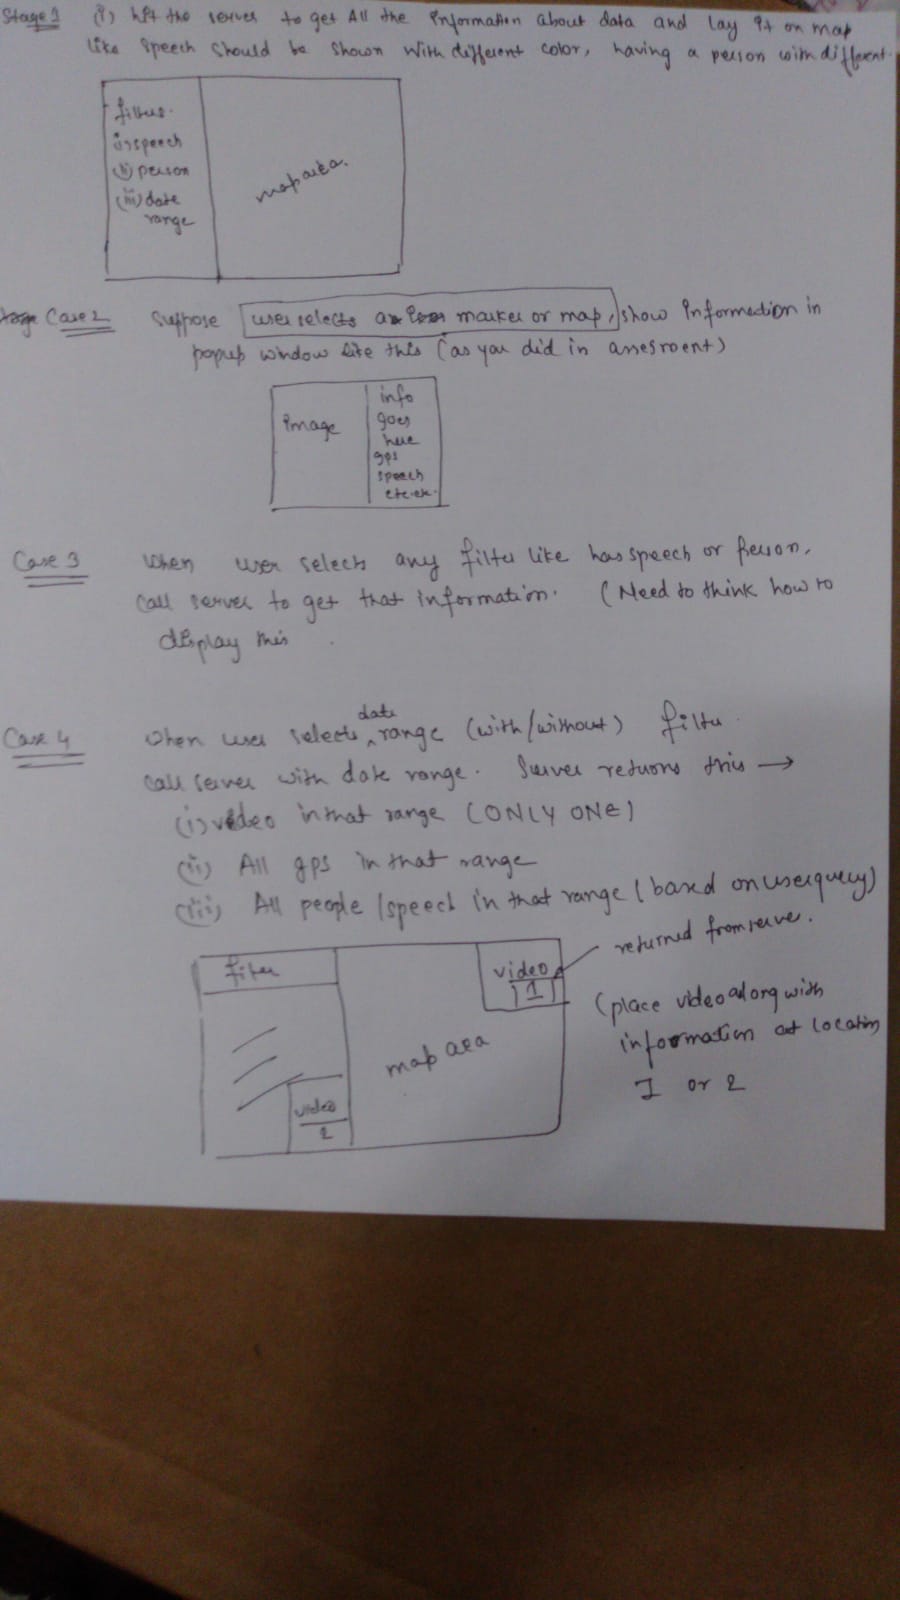 Stage 1 (i) hit the server to get All the Information about data and lay it on map
like speech should be shown with different color, having a person with different
filters.
(i) speech
(ii) person
(iii) date
range
map area.
Case 2 Suppose user selects a marker or map, show Information in
popup window like this (as you did in assesment)
image
info
goes
here
gps
speech
etc.etc.
Case 3 when user selects any filter like has speech or Person,
call server to get that information. (Need to think how to
display this
Case 4 when user selects date range (with/without) filter.
call server with date range. Server returns this →
(i) video in that range (ONLY ONE)
(ii) All gps in that range
(iii) All people / speech in that range (based on userquery)
returned from serve.
filter
video
1
(place video along with
information at location
1 or 2
map area
video
2